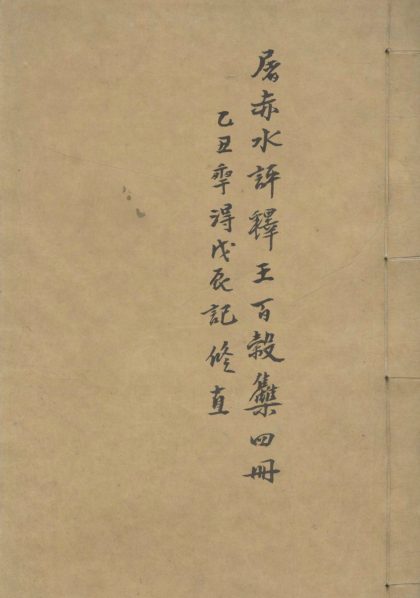 屠赤水評釋王百穀雧四冊
乙丑秊得戊辰記修直